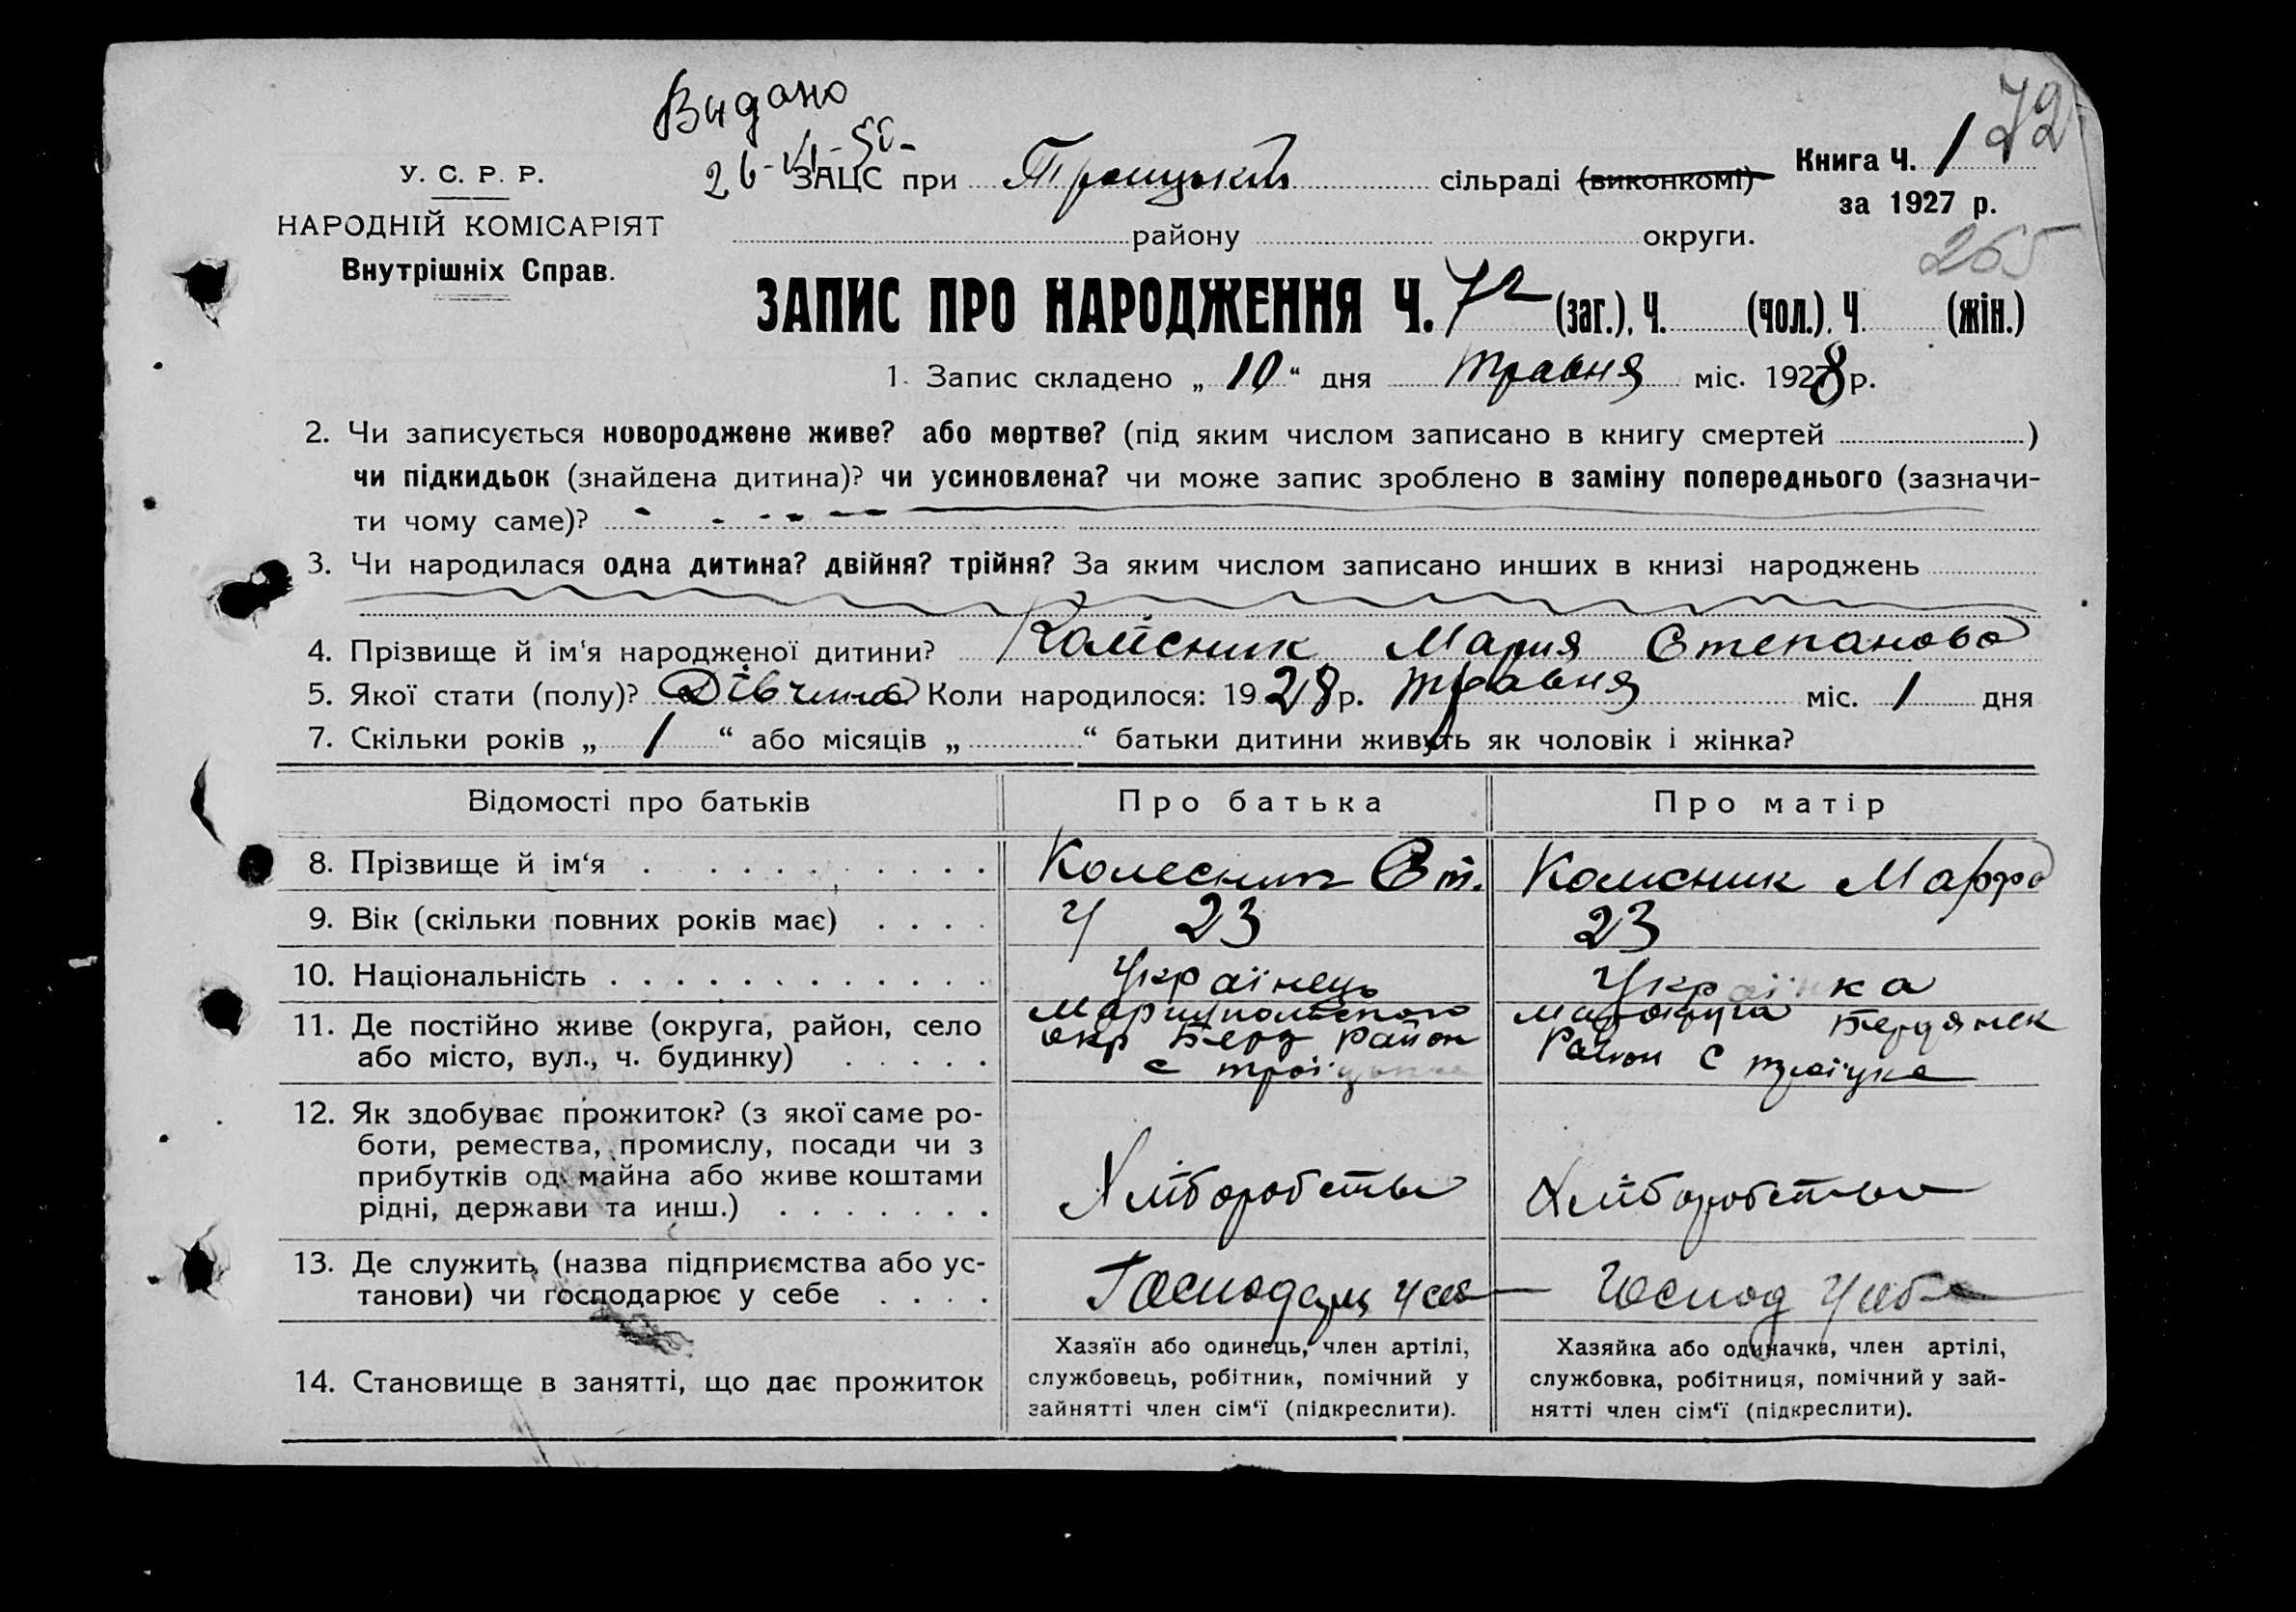 Видано
26-VI-50-
72
У. С. Р. Р.
НАРОДНІЙ КОМІСАРІЯТ
Внутрішніх Справ.
ЗАЦС при Троицький сільраді (виконкомі)
Книга Ч. 1
за 1927 р.
району округи.
265
ЗАПИС ПРО НАРОДЖЕННЯ Ч. 72 (заг.), Ч. (чол.), Ч. (жін.)
1. Запис складено „ 10 “ дня травня міс. 1928 р.
2. Чи записується новороджене живе? або мертве? (під яким числом записано в книгу смертей )
чи підкидьок (знайдена дитина)? чи усиновлена? чи може запис зроблено в заміну попереднього (зазначи-
ти чому саме)?
3. Чи народилася одна дитина? двійня? трійня? За яким числом записано инших в книзі народжень
4. Прізвище й ім‘я народженої дитини? Колісник Мария Степанова
5. Якої стати (полу)? Дівчина Коли народилося: 1928 р. травня міс. 1 дня
7. Скільки років „ 1 “ або місяців „ “ батьки дитини живуть як чоловік і жінка?
Відомості про батьків Про батька Про матір
8. Прізвище й ім‘я Колесник Ст. Колісник Марфа
9. Вік (скільки повних років має) 23 23
10. Національність Українець Українка
11. Де постійно живе (округа, район, село
або місто, вул., ч. будинку)
Мариупольского
окр Берд район
с троіцьке
округа Бердянск
Район с троіцке
12. Як здобуває прожиток? (з якої саме ро-
боти, ремества, промислу, посади чи з
прибутків од майна або живе коштами
рідні, держави та инш.)
Хліборобства Хліборобства
13. Де служить (назва підприємства або ус-
танови) чи господарює у себе
Господарц у себе Господ У себе
14. Становище в занятті, що дає прожиток
Хазяїн або одинець, член артілі,
службовець, робітник, помічний у
зайнятті член сім‘ї (підкреслити).
Хазяйка або одиначка, член артілі,
службовка, робітниця, помічний у зай-
нятті член сім‘ї (підкреслити).